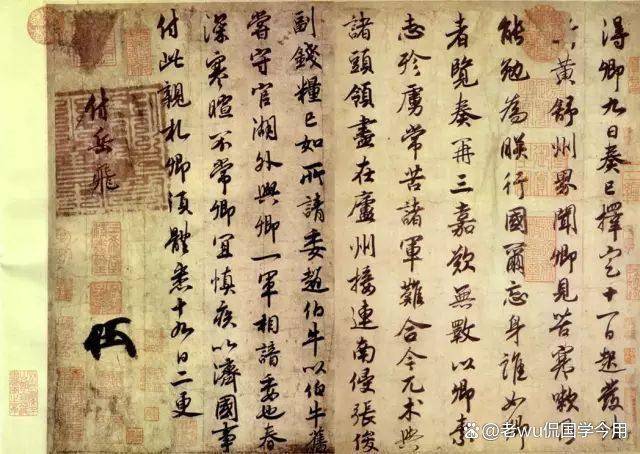 得卿九日奏已擇定十一日起發往
黄舒州界聞卿見苦寒嗽
能勉為朕行國爾忘身誰如卿
者覽奏再三嘉歎無斁以卿素
志殄虜常苦諸軍難合今兀术與
諸頭領盡在廬州接連南侵張俊
副錢糧已如所請委趙伯牛以伯牛舊
嘗守官湖外與卿一軍相諳委也春
深寒暄不常卿宜慎疾以濟國事
付此親札卿須體悉十九日二更
付岳飛
老wu侃国学今用